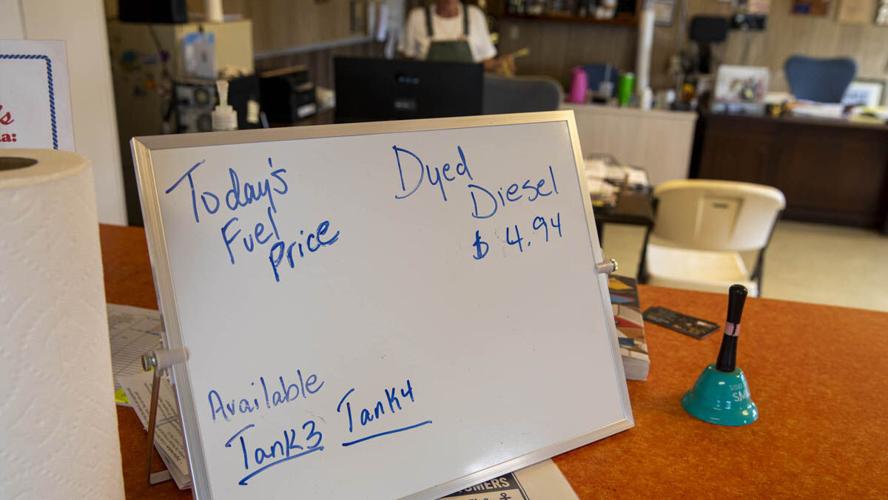 Today's
Fuel
Price
Dyed
Diesel
$ 4.94
Available
Tank3 Tank4